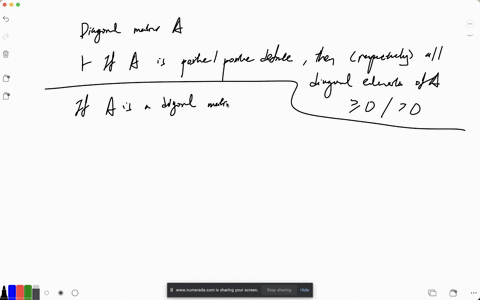 Diagonal matrix A
If A is positive / positive definite, then (respectively) all
diagonal elements of A
≥0 / >0
If A is a digonal matrix
www.numerade.com is sharing your screen. Stop sharing Hide